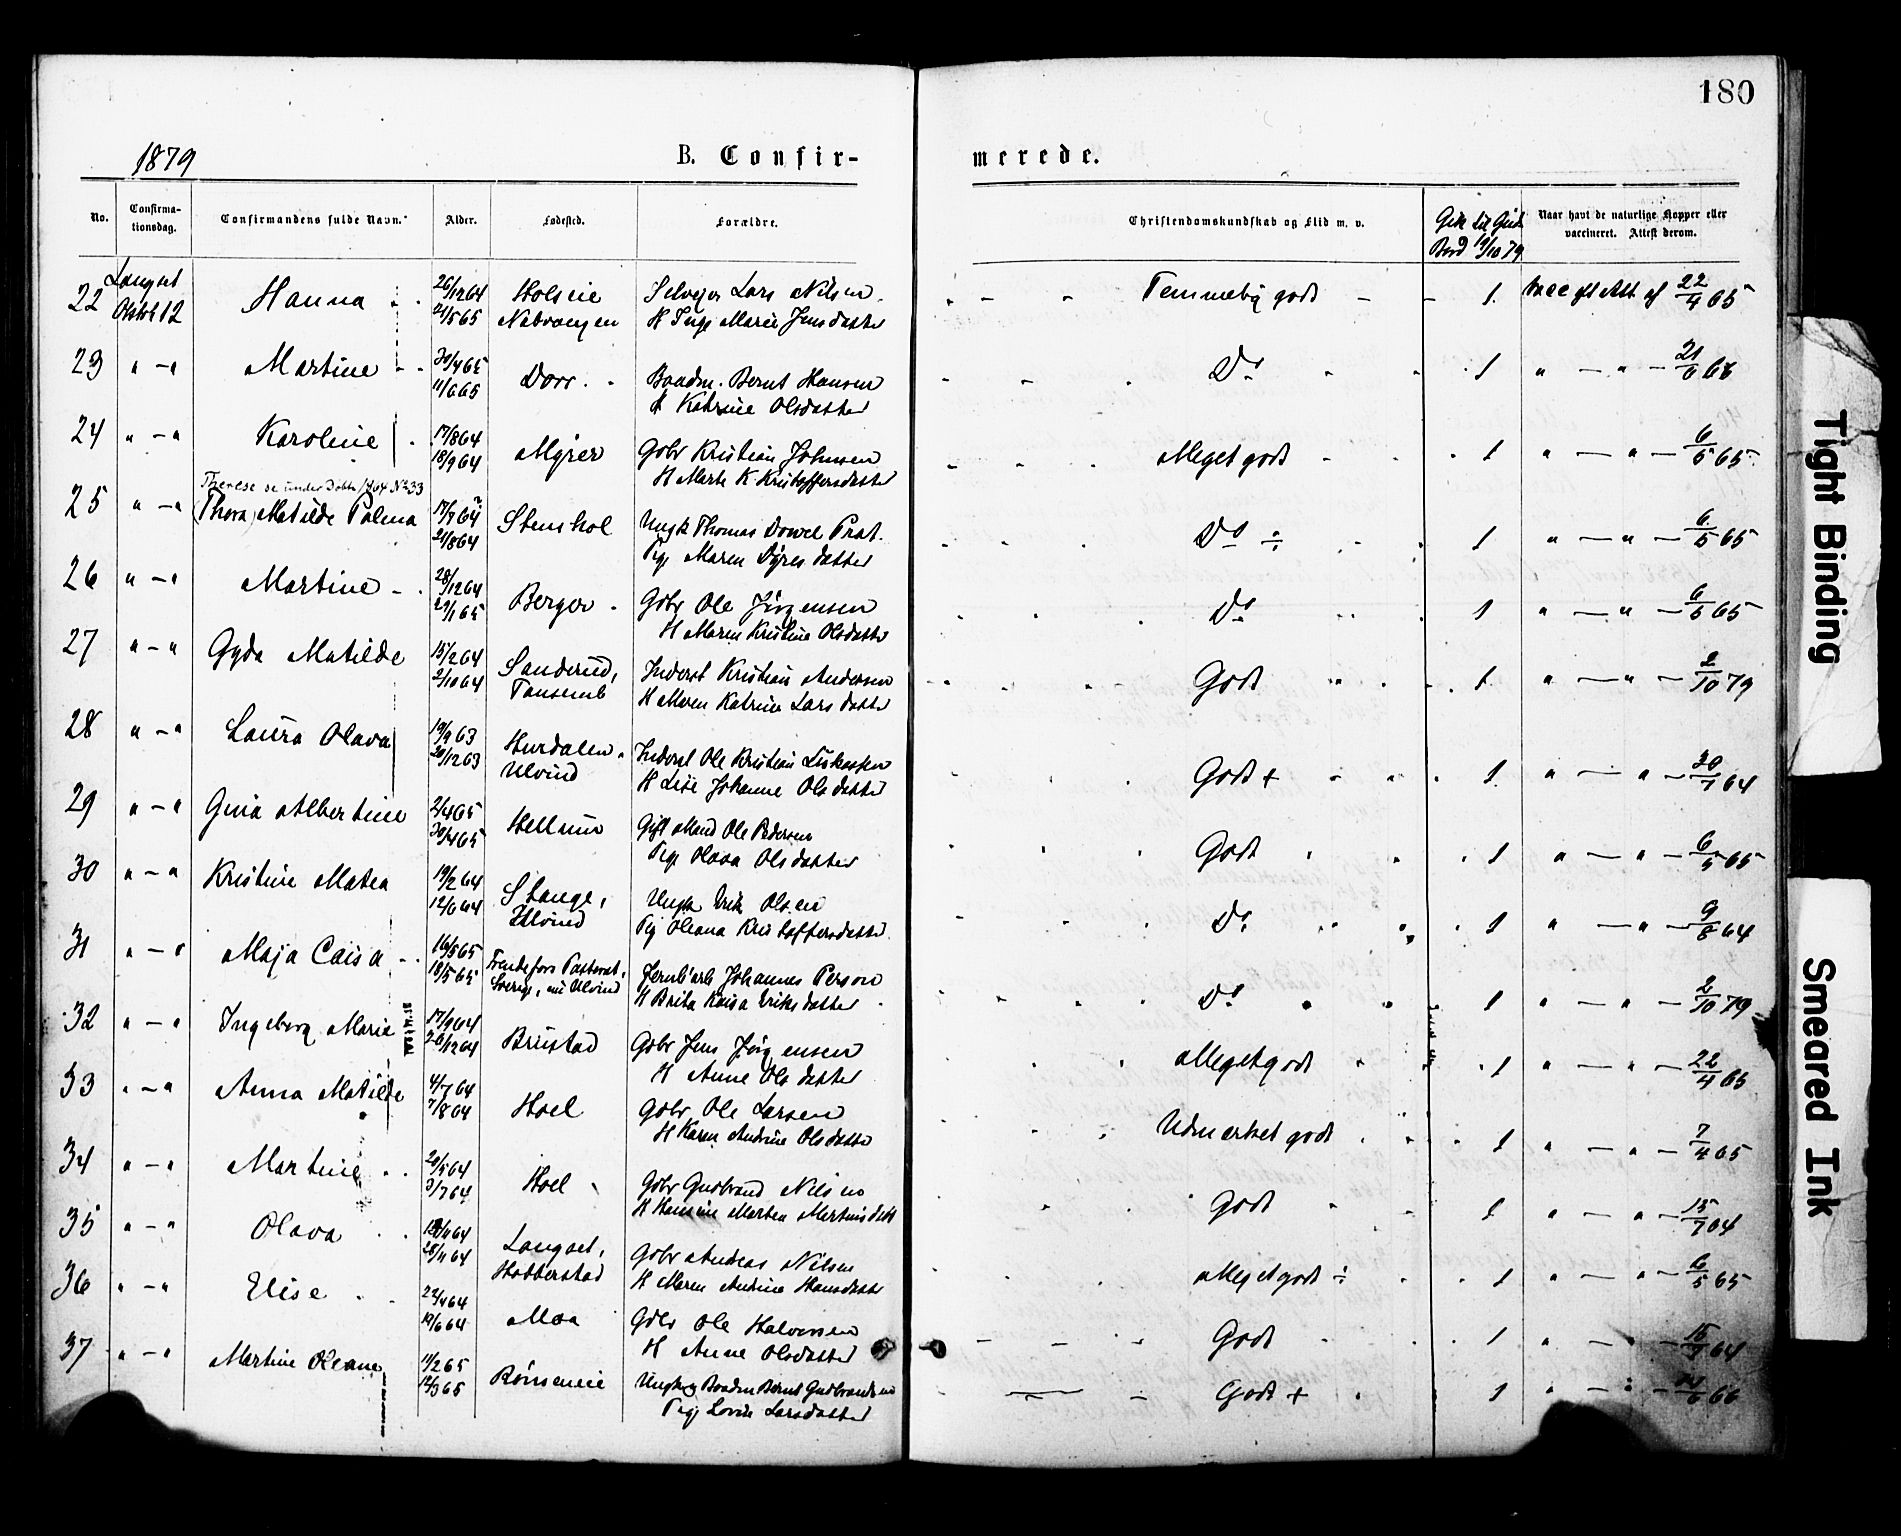 180
1879
B. Confir-
merede.
No.
Confirma-
tionsdag.
Confirmandens fulde Navn.
Alder.
Fødested.
Forældre.
Christendomskundskab og Flid m. v.
Gik til Guds
Bord 19/10 79
Naar havt de naturlige Kopper eller
vaccineret. Attest derom.
22 Langset Oktob 12 Hanna 26/12 64 Holseie Selveier Lars Nilsen Temmelig godt 1 Vacc. Att. af 22/4 65
21/5 65 H Inge Marie Jensdatter
23 " — " Martine 30/4 65 Dorr Baadm. Bernt Hansen Do 1 " — " —
11/6 65 H Katrine Olsdatter
24 " — " Karoline 17/8 64 Myrer Gbr Kristian Johnsen Meget godt 1 " — " — 6/5 65
18/9 64 H Marte K. Kristoffersdatter
Therese se under Døbte 1864 No 33
25 " — " (Thora) Matilde Palma 64 Stensbol Ungk Thomas Prat. Do ÷ 1 " — " — 6/5 65
21/8 64 Pige Maren Dyresdatter
26 " — " Martine 28/12 64 Berger Gbr Ole Jørgensen Do 1 " — " — 6/5 65
29/1 65 H Maren Kristine Olsdatter
27 " — " Gyda Matilde 15/2 64 Sanderud, Inderst Kristian Andersen Godt 1 " — " — 2/10 79
2/10 64 Tønsemb H Maren Katrine Larsdatter
28 " — " Laura Olava 19/9 63 Hurdalen Inderst Ole Kristian Godt + 1 " — " — 30/7 64
20/12 63 Ulvind H Lise Johanne Olsdatter
29 " — " Gina Albertine 2/4 65 Hellum Gift Mand Ole Pedersen Godt 1 " — " — 6/5 65
30/4 65 Pige Olava Olsdatter
30 " — " Kristine Matea 19/2 64 Stange, Ungk Erik Olsen Do 1 " — " — 9/8 64
12/6 64 Ulvind Pig Oleana Kristoffersdatter
31 " — " Maja Caisa 16/5 65 Frendefors Pastorat, Jernb.arb Johannes Person Do 1 " — " — 2/10 79
18/5 65 Sverige, nu Ulvind H Brita Kaisa Eriksdatter
32 " — " Ingeborg Marie 17/9 64 Brustad Gbr Jens Jørgensen Meget godt 1 " — " — 22/4 65
26/12 64 H Anne Olsdatter
33 " — " Anna Matilde 4/7 64 Hoel Gbr Ole Larsen Udmærket godt 1 " — " — 7/4 65
7/8 64 H Karen Andrine Olsdatter
34 " — " Martine 20/5 64 Hoel Gbr Gudbrand Nilsen Godt 1 " — " — 15/7 64
3/7 64 H Hansine Martea Martinsdatt
35 " — " Olava 64 Langset, Gbr Andreas Nilsen Meget godt ÷ 1 " — " — 6/5 65
28/11 64 Habberstad H Maren Andrine Hansdatter
36 " — " Elise 22/4 64 Moa Gbr Ole Halvorsen Godt 1 " — " — 15/7 64
19/6 64 H Anne Olsdatter
37 " — " Martine Oleane 11/2 65 Rønseneie Ungk og Baadm Bernt Gudbrandsen Godt + 1 " — " —
12/3 65 Pige Lovise Larsdatter
Tight Binding
Smeared Ink